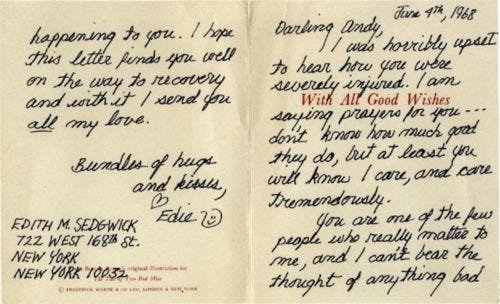 June 4th, 1968
Darling Andy,
I was horribly upset
to hear how you were
severely injured. I am
With All Good Wishes
saying prayers for you ---
don't know how much good
they do, but at least you
will know I care, and care
tremendously.
You are one of the few
people who really matter to
me, and I can't bear the
thought of anything bad
happening to you. I hope
this letter finds you well
on the way to recovery
and with it I send you
all my love.
Bundles of hugs
and kisses,
Edie
EDITH M. SEDGWICK
722 WEST 168th St.
NEW YORK
original illustration for
NEW YORK 10032
The Tale of Two Bad Mice
© FREDERICK WARNE & CO LTD, LONDON & NEW YORK